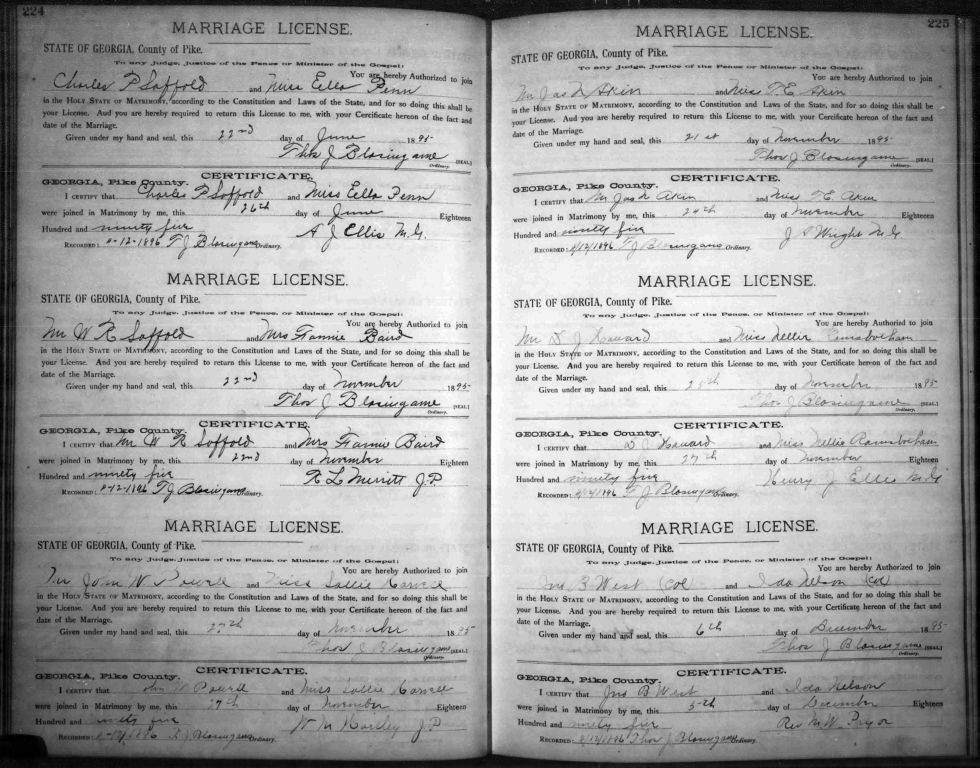 224
MARRIAGE LICENSE.
STATE OF GEORGIA, County of Pike.
To any Judge, Justice of the Peace or Minister of the Gospel:
You are hereby Authorized to join
Charles P Saffold and Miss Ella Penn
in the HOLY STATE OF MATRIMONY, according to the Constitution and Laws of the State, and for so doing this shall be
your License. And you are hereby required to return this License to me, with your Certificate hereon of the fact and
date of the Marriage.
Given under my hand and seal, this 22nd day of June 1895
Thos J Blasingame [SEAL.]
Ordinary.
CERTIFICATE.
GEORGIA, Pike County.
I CERTIFY that Charles P Saffold and Miss Ella Penn
were joined in Matrimony by me, this 26th day of June Eighteen
Hundred and ninety five A J Ellis M.G.
RECORDED: 4-12-1896 T J Blasingame Ordinary.
MARRIAGE LICENSE.
STATE OF GEORGIA, County of Pike.
To any Judge, Justice of the Peace or Minister of the Gospel:
You are hereby Authorized to join
Mr W R Saffold and Mrs Fannie Baird
in the HOLY STATE OF MATRIMONY, according to the Constitution and Laws of the State, and for so doing this shall be
your License. And you are hereby required to return this License to me, with your Certificate hereon of the fact and
date of the Marriage.
Given under my hand and seal, this 22nd day of November 1895
Thos J Blasingame [SEAL.]
Ordinary.
CERTIFICATE.
GEORGIA, Pike County.
I CERTIFY that Mr W R Saffold and Mrs Fannie Baird
were joined in Matrimony by me, this 22nd day of November Eighteen
Hundred and ninety five R L Merritt J.P.
RECORDED: 4-12-1896 T J Blasingame Ordinary.
MARRIAGE LICENSE.
STATE OF GEORGIA, County of Pike.
To any Judge, Justice of the Peace or Minister of the Gospel:
You are hereby Authorized to join
Mr John W Powell and Miss Lollie
in the HOLY STATE OF MATRIMONY, according to the Constitution and Laws of the State, and for so doing this shall be
your License. And you are hereby required to return this License to me, with your Certificate hereon of the fact and
date of the Marriage.
Given under my hand and seal, this 27th day of November 1895
Thos J Blasingame [SEAL.]
Ordinary.
CERTIFICATE.
GEORGIA, Pike County.
I CERTIFY that John W Powell and Miss Lollie
were joined in Matrimony by me, this 27th day of November Eighteen
Hundred and ninety five W M Hartley J.P.
RECORDED: 1896 T J Blasingame Ordinary.
225
MARRIAGE LICENSE.
STATE OF GEORGIA, County of Pike.
To any Judge, Justice of the Peace or Minister of the Gospel:
You are hereby Authorized to join
Mr Jas N Akin and Miss T. E. Akin
in the HOLY STATE OF MATRIMONY, according to the Constitution and Laws of the State, and for so doing this shall be
your License. And you are hereby required to return this License to me, with your Certificate hereon of the fact and
date of the Marriage.
Given under my hand and seal, this 21st day of November 1895
Thos J Blasingame [SEAL.]
Ordinary.
CERTIFICATE.
GEORGIA, Pike County.
I CERTIFY that Mr Jas N Akin and Miss T. E. Akin
were joined in Matrimony by me, this 24th day of November Eighteen
Hundred and ninety five J S Wright M.G.
RECORDED: 4/12/1896 T J Blasingame Ordinary.
MARRIAGE LICENSE.
STATE OF GEORGIA, County of Pike.
To any Judge, Justice of the Peace or Minister of the Gospel:
You are hereby Authorized to join
Mr D J Howard and Miss Nellie
in the HOLY STATE OF MATRIMONY, according to the Constitution and Laws of the State, and for so doing this shall be
your License. And you are hereby required to return this License to me, with your Certificate hereon of the fact and
date of the Marriage.
Given under my hand and seal, this 25th day of November 1895
Thos J Blasingame [SEAL.]
Ordinary.
CERTIFICATE.
GEORGIA, Pike County.
I CERTIFY that D J Howard and Miss Nellie
were joined in Matrimony by me, this 27th day of November Eighteen
Hundred and ninety five Henry J Ellis M.G.
RECORDED: 1896 T J Blasingame Ordinary.
MARRIAGE LICENSE.
STATE OF GEORGIA, County of Pike.
To any Judge, Justice of the Peace or Minister of the Gospel:
You are hereby Authorized to join
Jno. B West (Col and Ida Nelson (Col)
in the HOLY STATE OF MATRIMONY, according to the Constitution and Laws of the State, and for so doing this shall be
your License. And you are hereby required to return this License to me, with your Certificate hereon of the fact and
date of the Marriage.
Given under my hand and seal, this 6th day of December 1895
Thos J Blasingame [SEAL.]
Ordinary.
CERTIFICATE.
GEORGIA, Pike County.
I CERTIFY that Jno B West and Ida Nelson
were joined in Matrimony by me, this 5th day of December Eighteen
Hundred and ninety five Rev M.W. Pryor
RECORDED: 4/12/1896 Thos J Blasingame Ordinary.